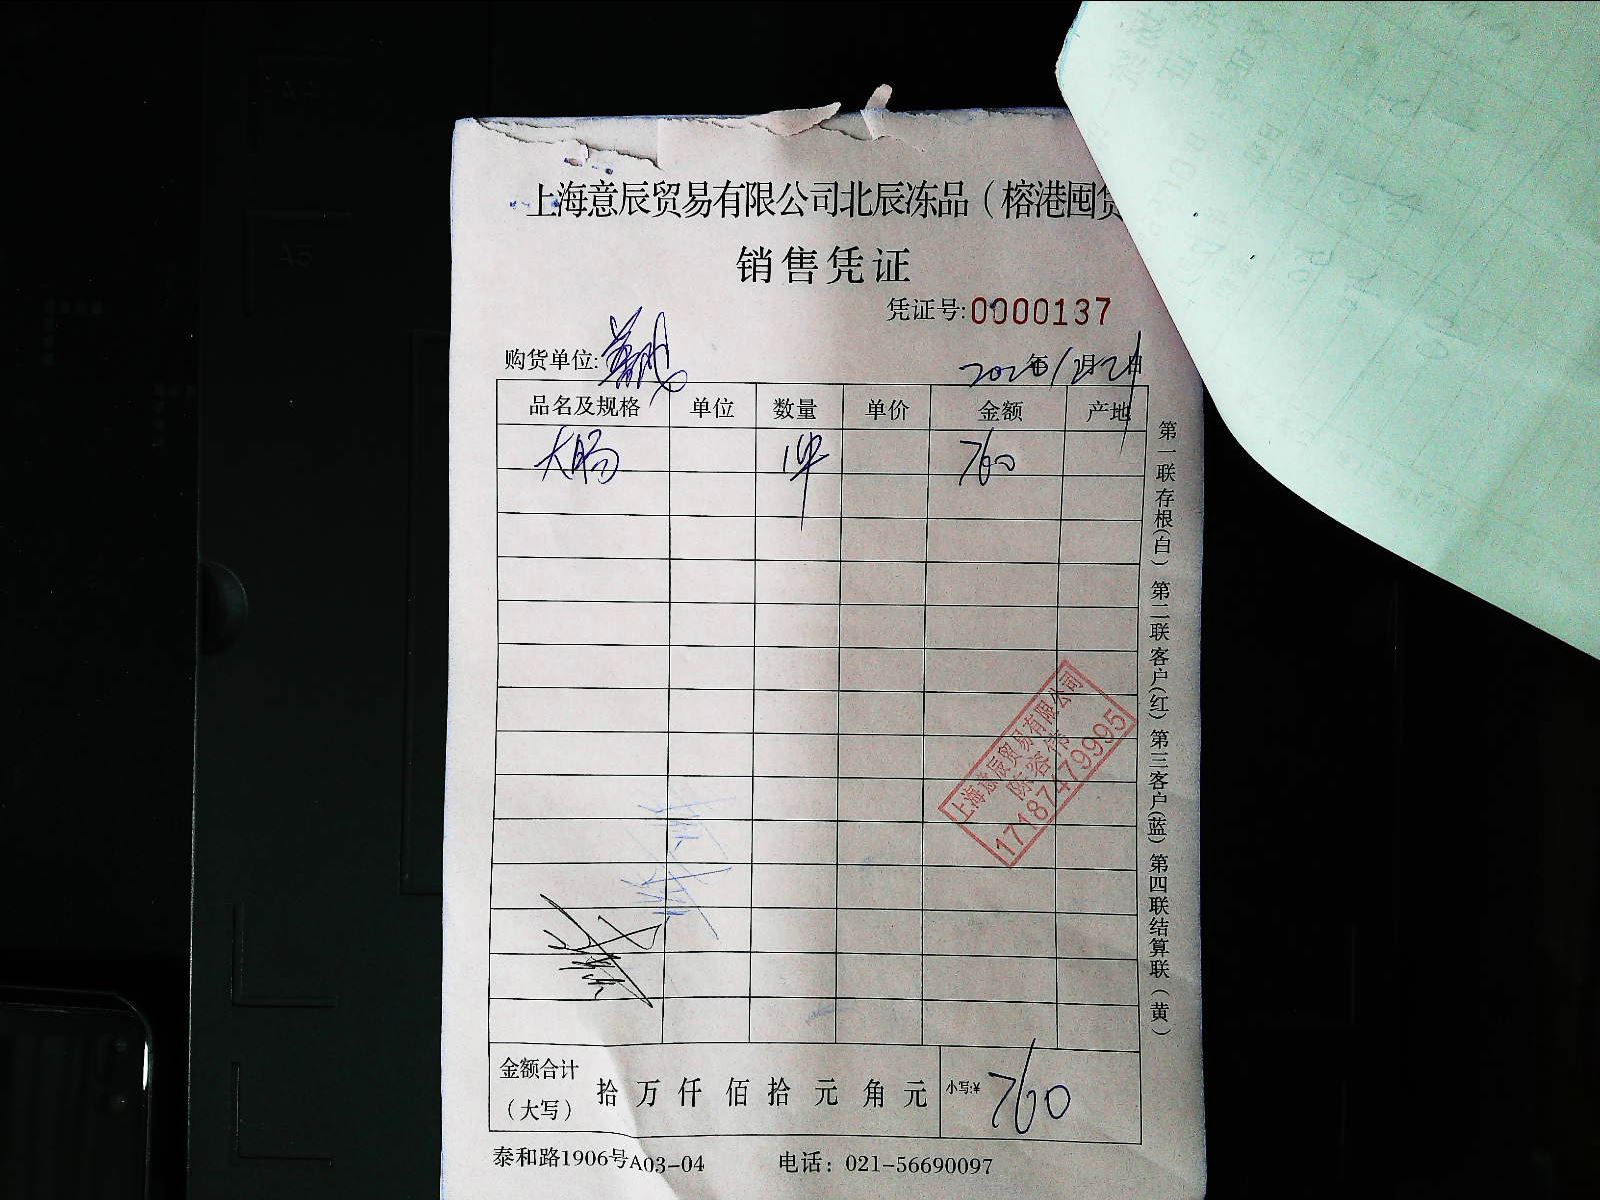 上海意辰贸易有限公司北辰冻品（榕港囤货
销售凭证
凭证号:0000137
购货单位:
2020年12月21日
品名及规格 单位 数量 单价 金额 产地
大肠 1件 760
第一联存根(白) 第二联客户(红) 第三客户(蓝) 第四联结算联(黄)
上海意辰贸易有限公司
陈容伟
17187479995
金额合计
（大写） 拾 万 仟 佰 拾 元 角 元 小写:¥ 760
泰和路1906号A03-04 电话：021-56690097